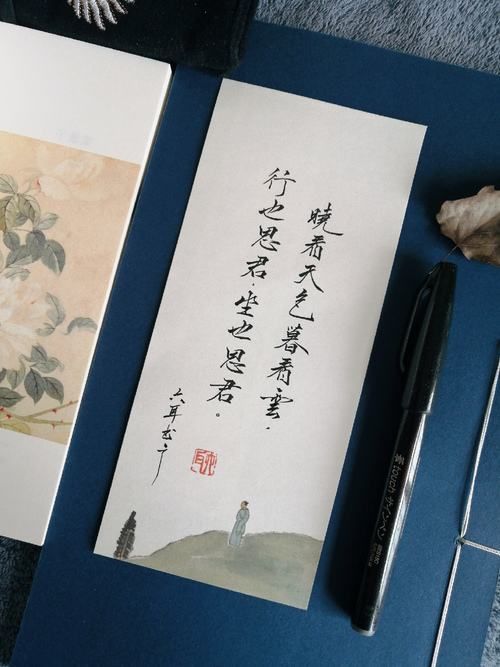 曉看天色暮看雲，
行也思君，坐也思君。
六耳书
六耳
touch サインペン